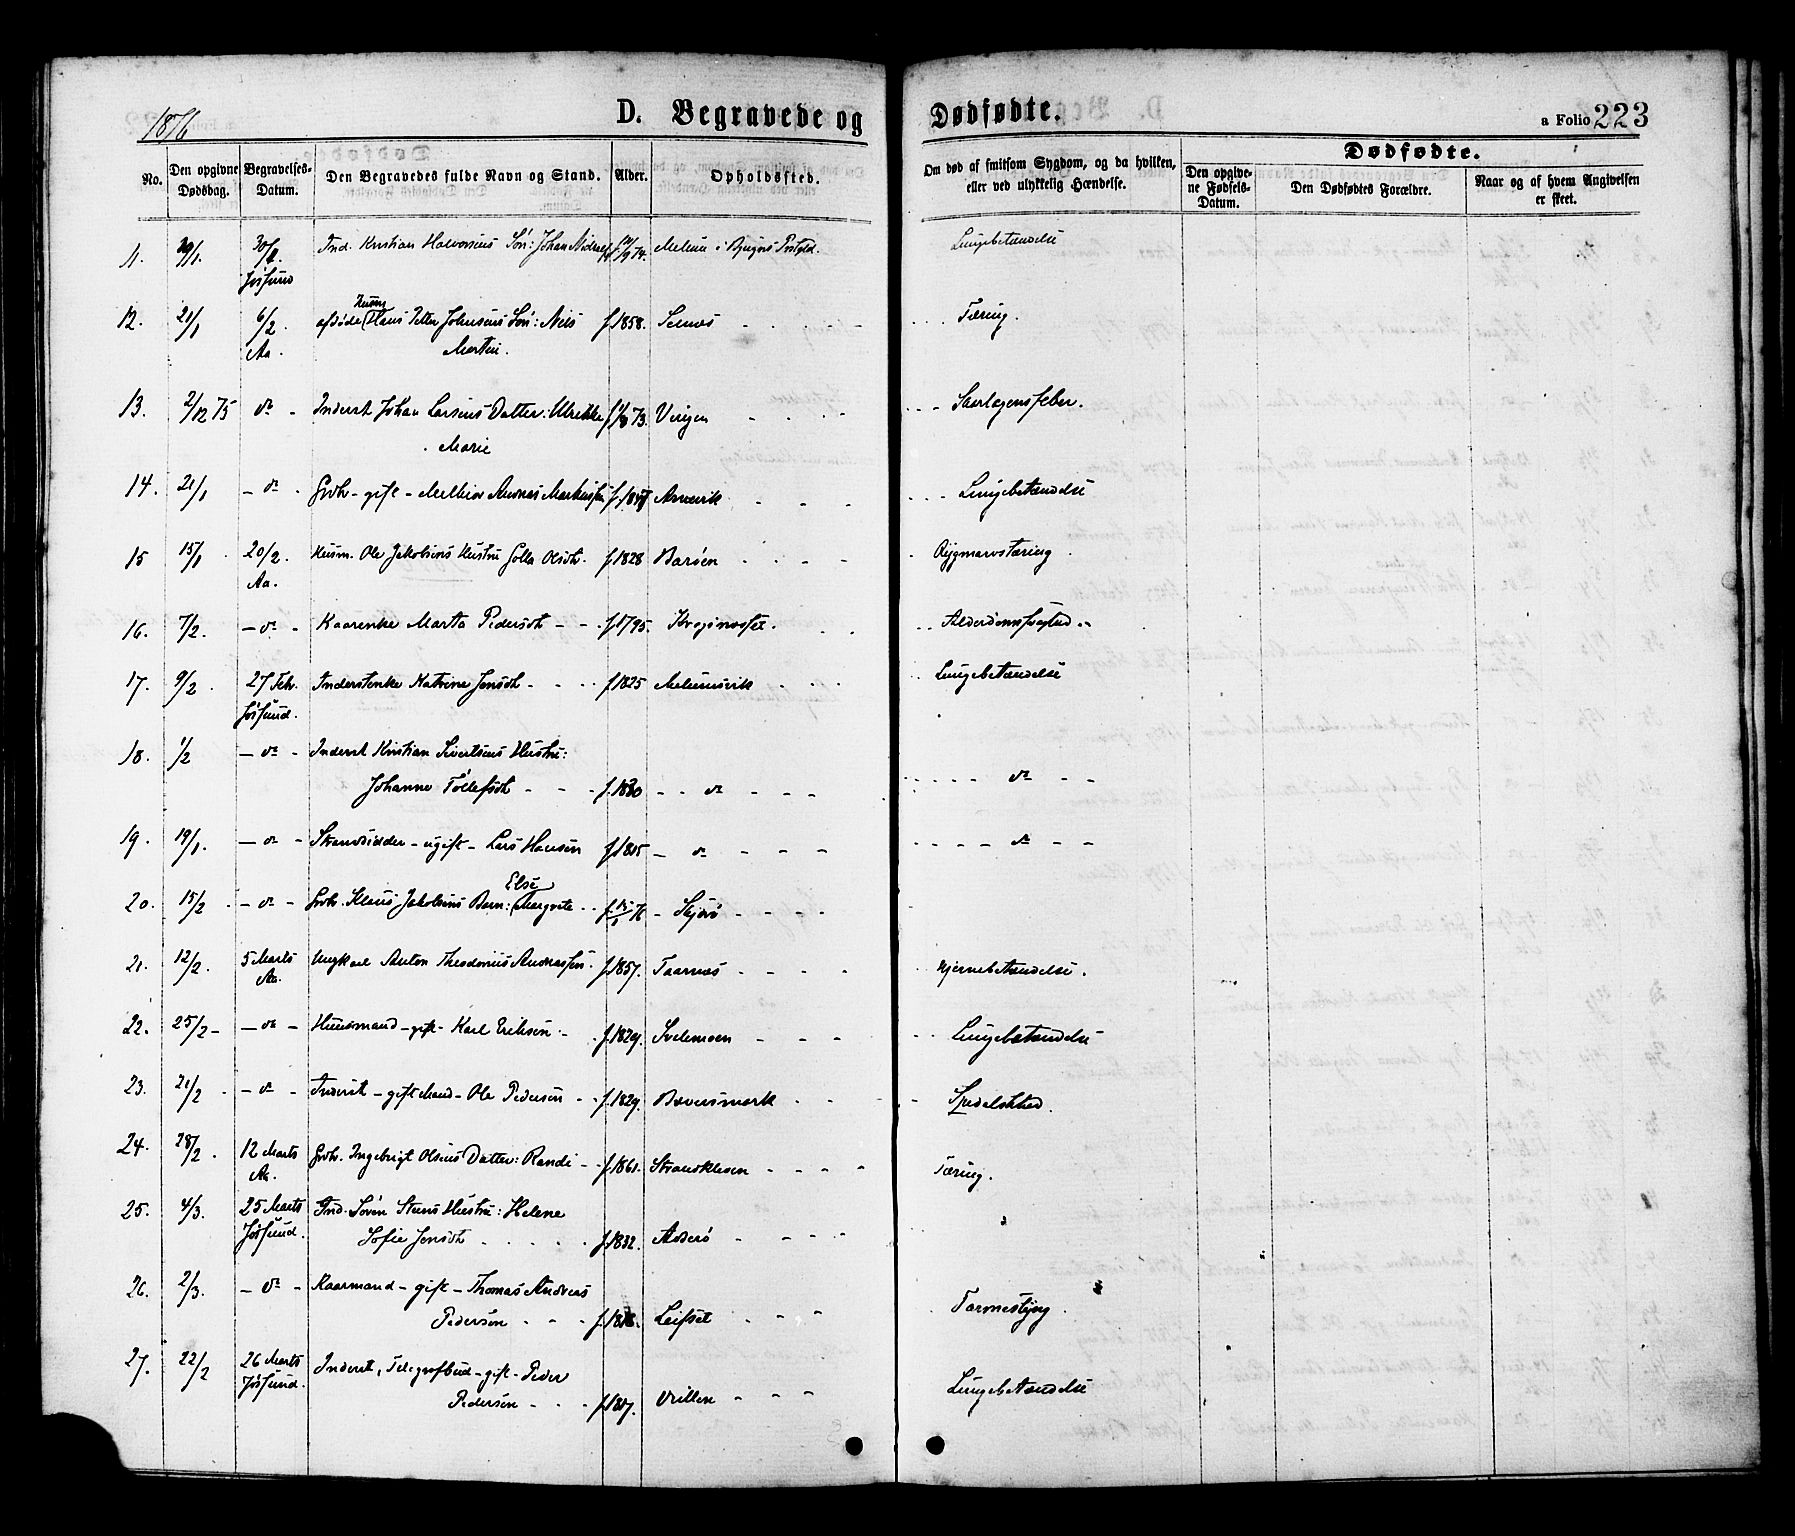 1876
D. Begravede og Dødfødte.
a Folio 223
No.
Den opgivne Dødsdag.
Begravelses-Datum.
Den Begravedes fulde Navn og Stand.
Alder.
Opholdssted.
Om død af smitsom Sygdom, og da hvilken, eller ved ulykkelig Hændelse.
Dødfødte.
Den opgivne Fødsels-Datum.
Den Dødfødtes Forældre.
Naar og af hvem Angivelsen er skeet.
11. 30/1 Jøssund Ind. Kristian Halvorsens Søn: Johan Melum i Bjugns Prstgld. Lungebetændelse
12. 21/1 6/2. Aa. afdøde Husm Hans Petter Johnsens Søn: Nils Martin. f. 1858. Selnes Tæring.
13. 2/12 75 do Inderst Johan Larsens Datter: Ulrikke Marie 73. Skarlagensfeber.
14. 21/1 do Grdbr. - gift - Melkior Andreas Markussen Lungebetændelse
15 15/1 20/2. Aa. Husm. Ole Jakobsens Hustru Golla Olsdtr. f. 1828 Barøen Rygmarvstæring
16. 7/2. do Kaarenke Marta Pedersdtr f. 1795. Kroginasset. Alderdomssvaghed
17. 9/2 27 Febr. Jøssund. Inderstenke Katrine Jensdtr f. 1825 Melumsvik Lungebetændelse
18. 1/2 do Inderst Kristian Sivertsens Hustru: Johanne Tollefsdtr f. 1830 do do
19. 19/1. do Strandsidder - ugift - Lars Hansen f. 1815 do do
20. 15/2 do Grdbr. Klaus Jakobsens Barn: Else Margrete 76 Skjørø
21. 12/2. 5 Marts Aa. Ungkarl Anton Theodorius Andreassen. f. 1857. Taarnes Hjernebetændelse.
22. 25/2 do Huusmand - gift - Karl Eriksen f. 1829. Svelemoen Lungebetændelse
23. 21/2 do Inderst - gift Mand - Ole Pedersen f. 1829. Bæversmark Spedalskhed.
24. 28/2 12 Marts Aa. Grdbr. Ingebrigt Olsens Datter: Randi f. 1861. Tæring.
25. 4/3. 25 Marts Jøssund. Ind. Søren Stens Hustru: Helene Sofie Jensdtr f. 1832. Asserø
26. 2/3. do Kaarmand - gift - Thomas Andreas Pedersen f. 1818. Leifset Tarmeslyng.
27. 22/2 26 Marts Jøssund. Inderst, Telegrafbud - gift - Peder Pedersen f. 1817. Vallen Lungebetændelse